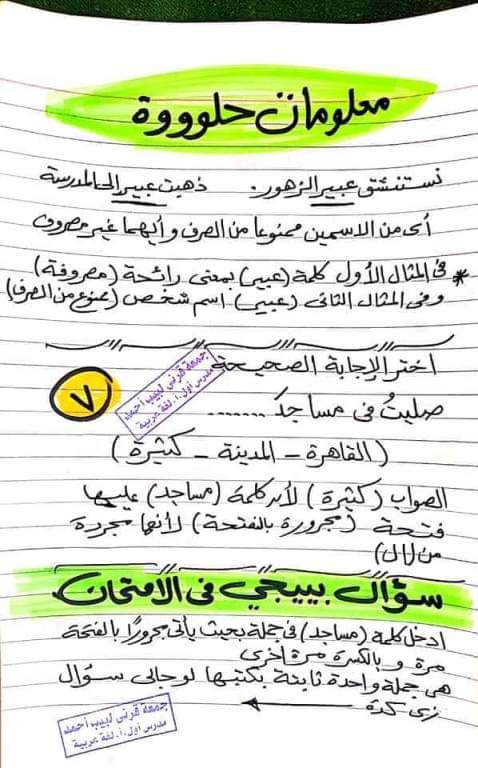 معلومات حلوووة
نستنشق عبير الزهور. ذهبت عبير إلى المدرسة
أى من الاسمين ممنوعا من الصرف وأيهما غير مصروف
* فى المثال الأول كلمة (عبير) بمعنى رائحة (مصروفة)
وفى المثال الثانى (عبير) اسم شخص (ممنوع من الصرف)
اختر الإجابة الصحيحة
صليتُ فى مساجدَ .......
٧
(القاهرة - المدينة - كثيرة)
الصواب (كثيرة) لأن كلمة (مساجد) عليها
فتحة (مجرورة بالفتحة) لأنها مجردة
من (ال)
جمعة قرنى لبيب أحمد
مدرس أول .أ. لغة عربية
سؤال بييجي فى الامتحان
ادخل كلمة (مساجد) فى جملة بحيث يأتى مجرورًا بالفتحة
مرة و بالكسرة مرة اخرى
هى جملة واحدة ثابتة بكتبها لو جالى سؤال
زى كدة
جمعة قرنى لبيب أحمد
مدرس أول .أ. لغة عربية